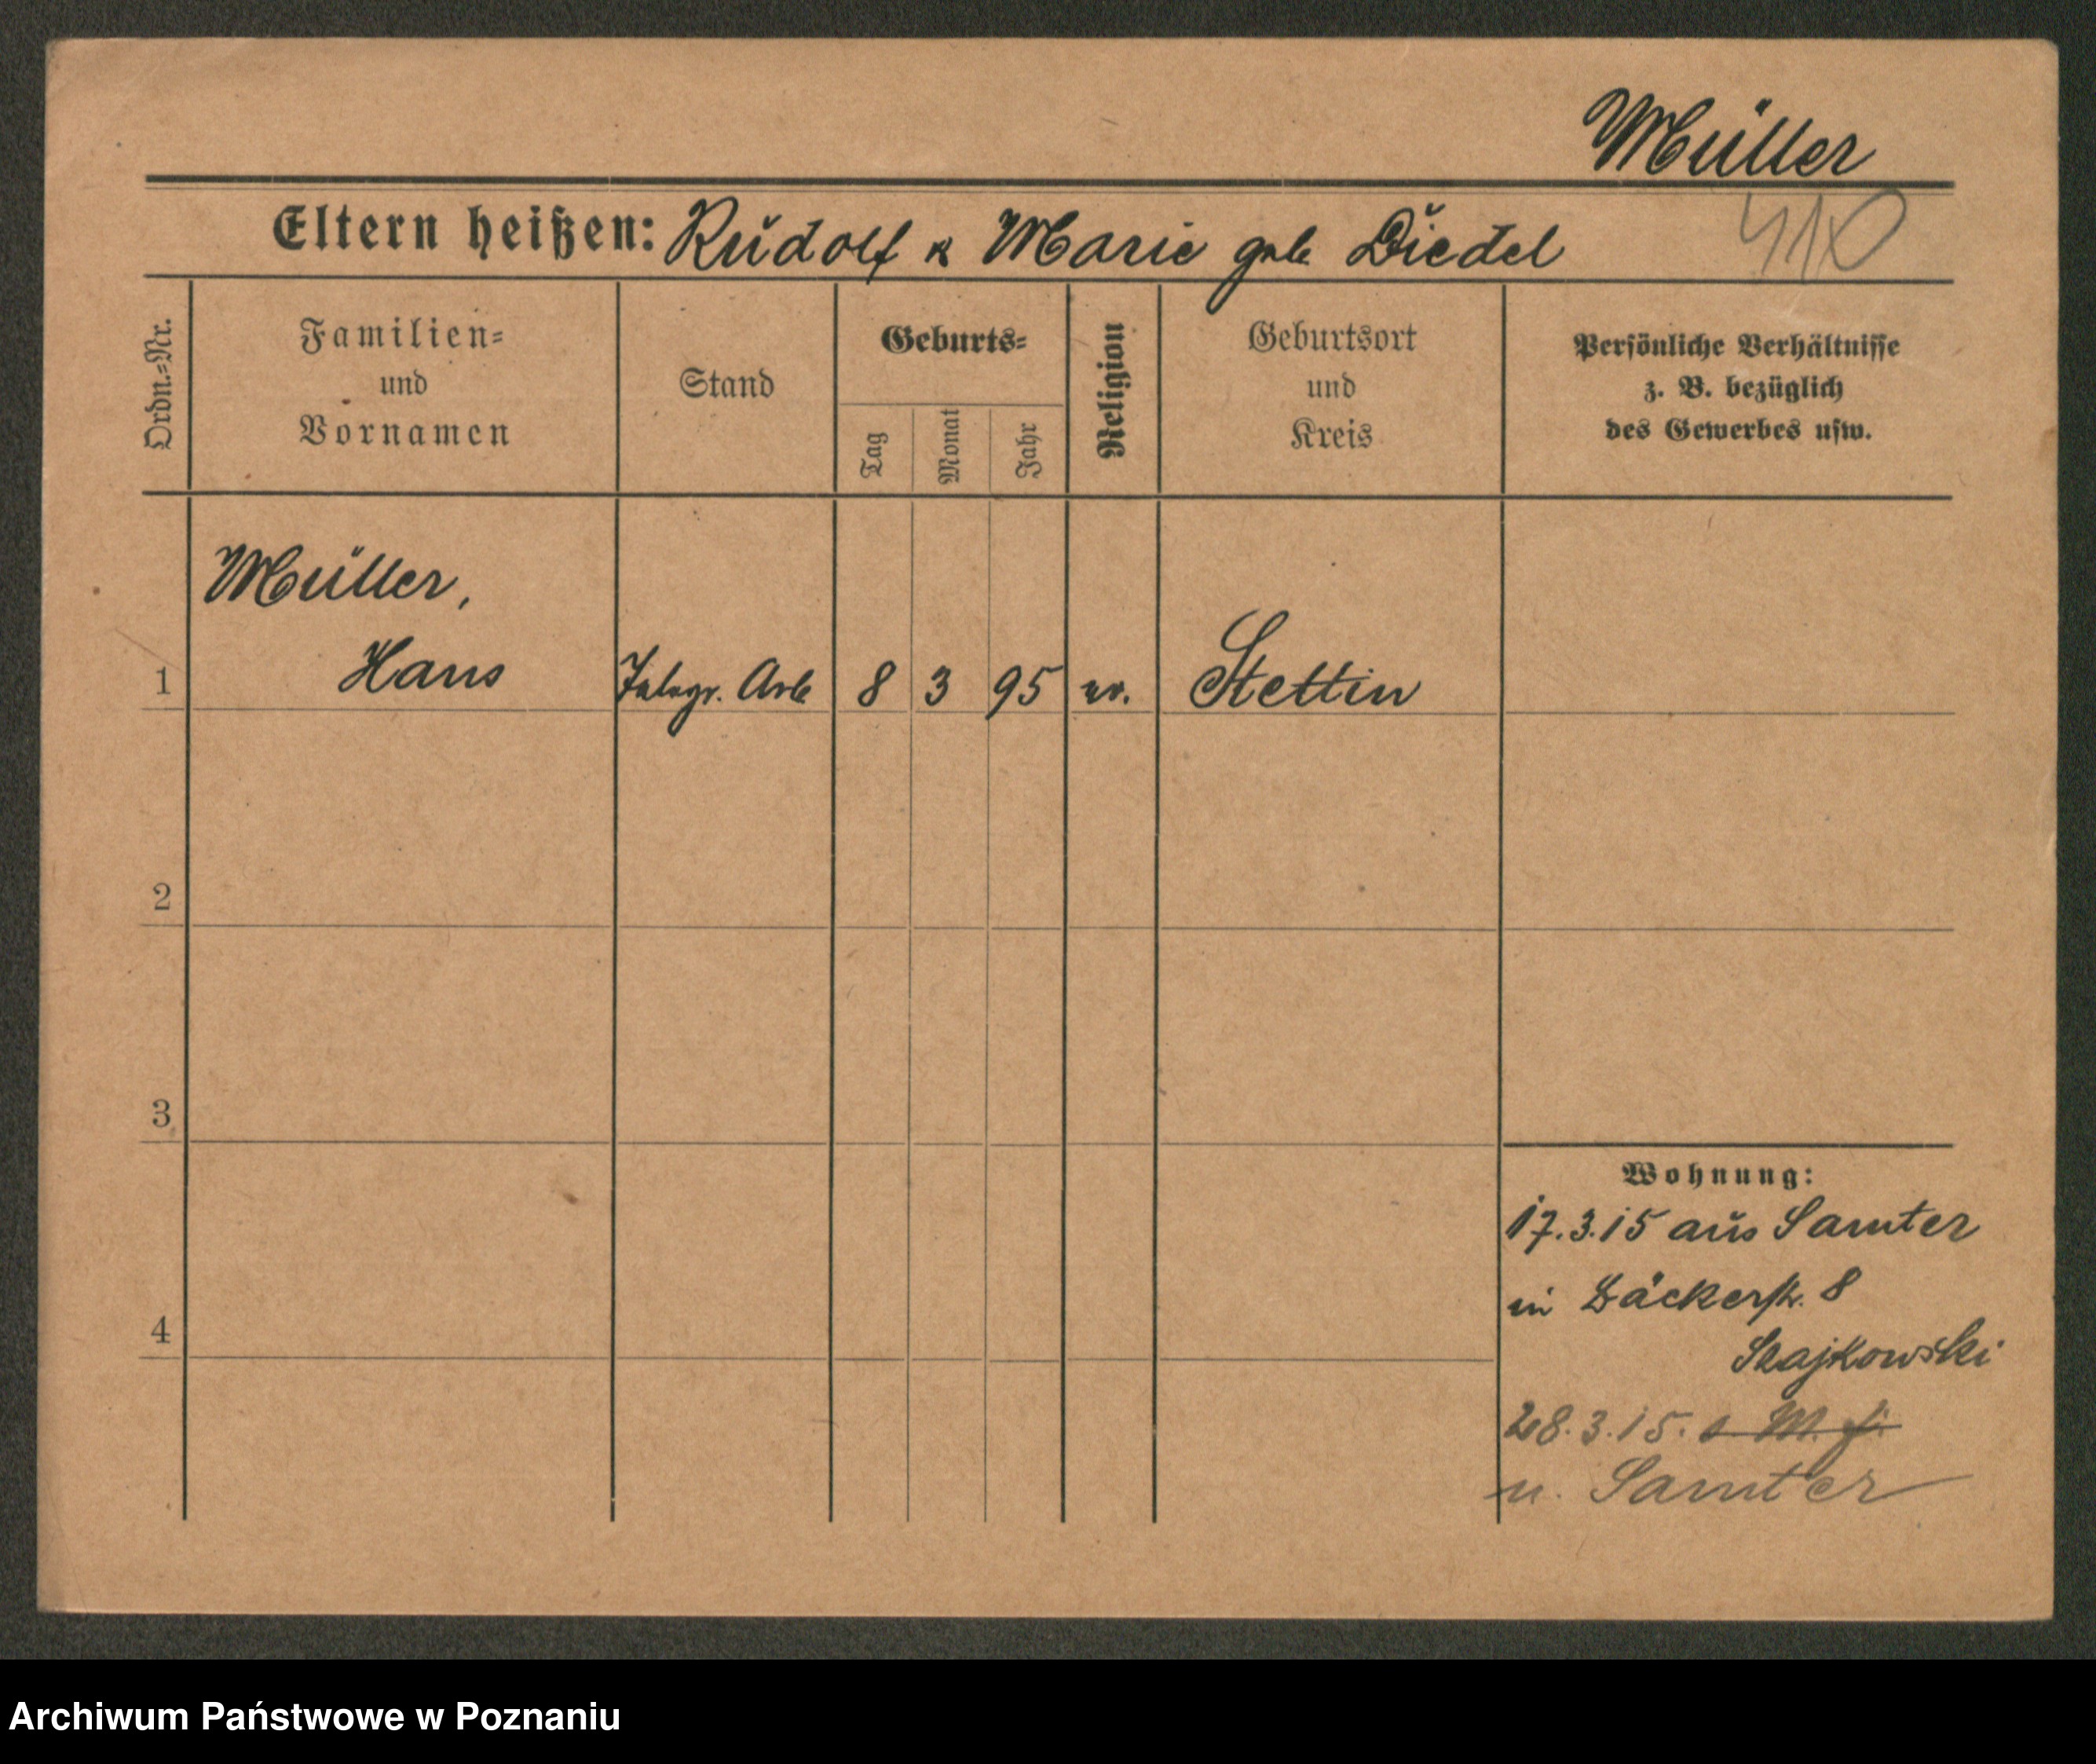 Müller
Eltern heißen: Rudolf & Marie geb Diedel
410
Ordn.=Nr.
Familien=
und
Vornamen
Stand
Geburts=
Tag
Monat
Jahr
Religion
Geburtsort
und
Kreis
Persönliche Verhältnisse
z. B. bezüglich
des Gewerbes usw.
Müller,
1 Hans Telegr. Arb 8 3 95 ev. Stettin
2
3
4
Wohnung:
17.3.15 aus Samter
in Bäckerstr. 8
Szajkowski
28.3.15.
n. Samter
Archiwum Państwowe w Poznaniu